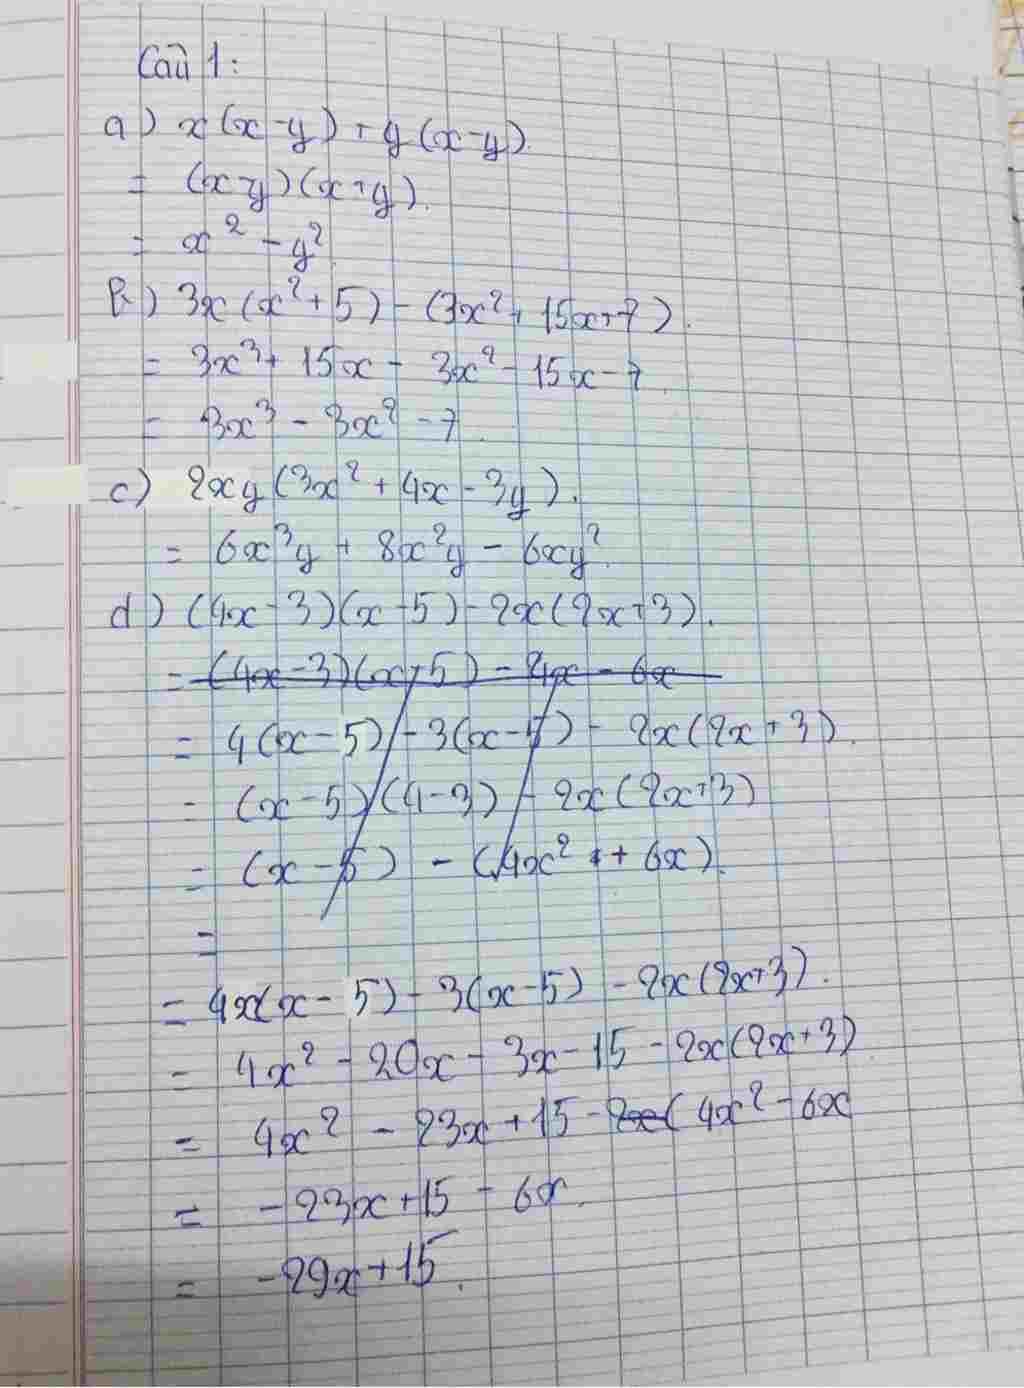 Câu 1:
a) x(x-y) + y(x-y).
= (x-y)(x+y).
= x² - y²
b) 3x(x²+5) - (3x² + 15x+7).
= 3x³ + 15x - 3x² - 15x - 7.
= 3x³ - 3x² - 7.
c) 2xy(3x² + 4x - 3y).
= 6x³y + 8x²y - 6xy².
d) (4x-3)(x-5) - 2x(2x+3).
= (4x-3)(x+5) - 4x - 6x
= 4(x-5) - 3(x-5) - 2x(2x+3).
= (x-5)(4-3) - 2x(2x+3)
= (x-5) - (4x² + 6x).
=
= 4x(x-5) - 3(x-5) - 2x(2x+3).
= 4x² - 20x - 3x - 15 - 2x(2x+3)
= 4x² - 23x + 15 - 2x( 4x² - 6x
= -23x + 15 - 6x.
= -29x + 15.